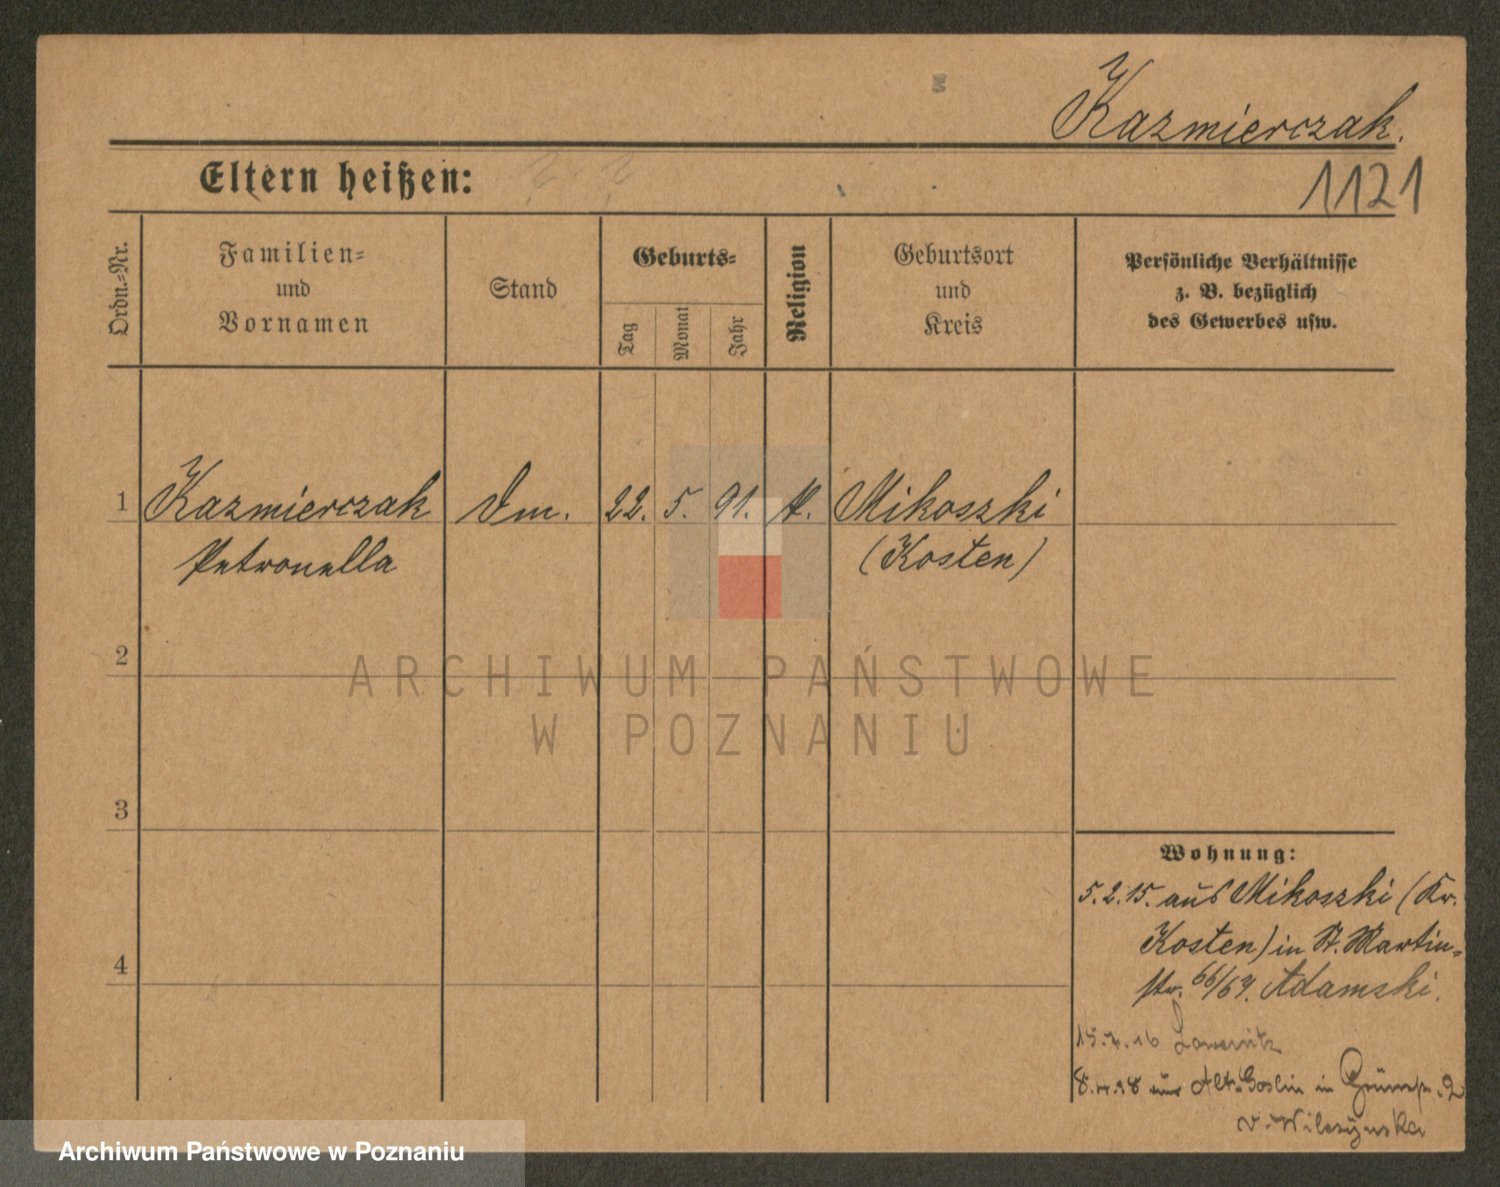 Kazmierczak.
Eltern heißen:
1121
Ordn.-Nr.
Familien-
und
Vornamen
Stand
Geburts-
Tag
Monat
Jahr
Religion
Geburtsort
und
Kreis
Persönliche Verhältnisse
z. B. bezüglich
des Gewerbes usw.
1 Kazmierczak Dm. 22. 5. 91. K. Mikoszki
Petronella (Kosten)
2
3
4
Wohnung:
5.2.15. aus Mikoszki (Kr.
Kosten) in St. Martin-
str. 66/67. Adamski.
15. 16
aus Alt-Goslin in 2
v. Wilczynska
ARCHIWUM PAŃSTWOWE
W POZNANIU
Archiwum Państwowe w Poznaniu